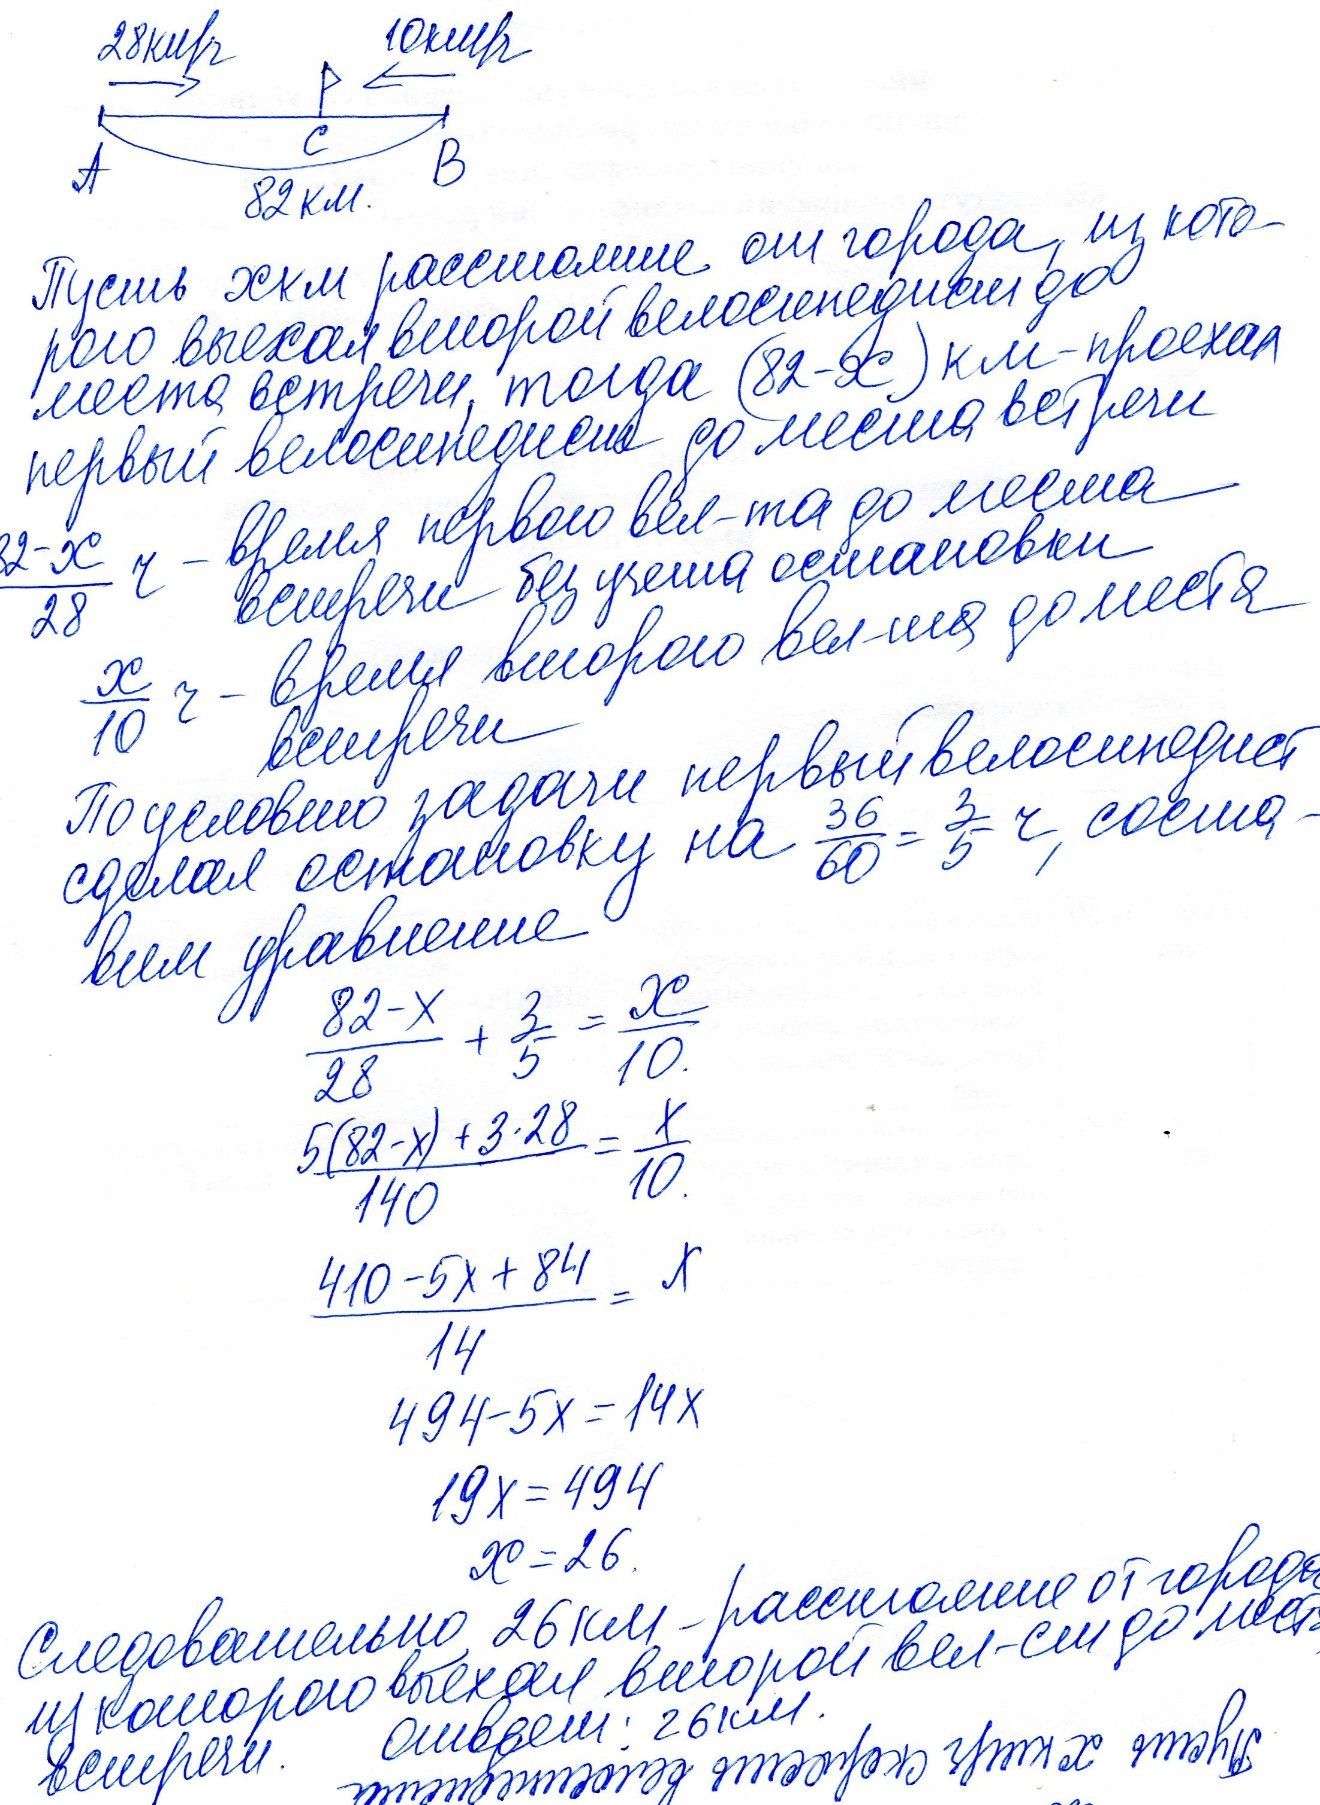 28км/ч 10км/ч
A C B
82км.
Пусть xкм расстояние от города, из кото-
рого выехал второй велосипедист до
места встречи, тогда (82-x) км-проехал
первый велосипедист до места встречи
82-x/28 ч - время первого вел-та до места
встречи без учета остановки
x/10 ч - время второго вел-та до места
встречи
По условию задачи первый велосипедист
сделал остановку на 36/60 = 3/5 ч, соста-
вим уравнение
82-x/28 + 3/5 = x/10.
5(82-x)+3·28/140 = x/10.
410-5x+84/14 = x
494-5x=14x
19x=494
x=26.
Следовательно, 26км-расстояние от города
из которого выехал второй вел-ст до места
встречи. Ответ: 26км.
Пусть x км/ч скорость велосипедиста